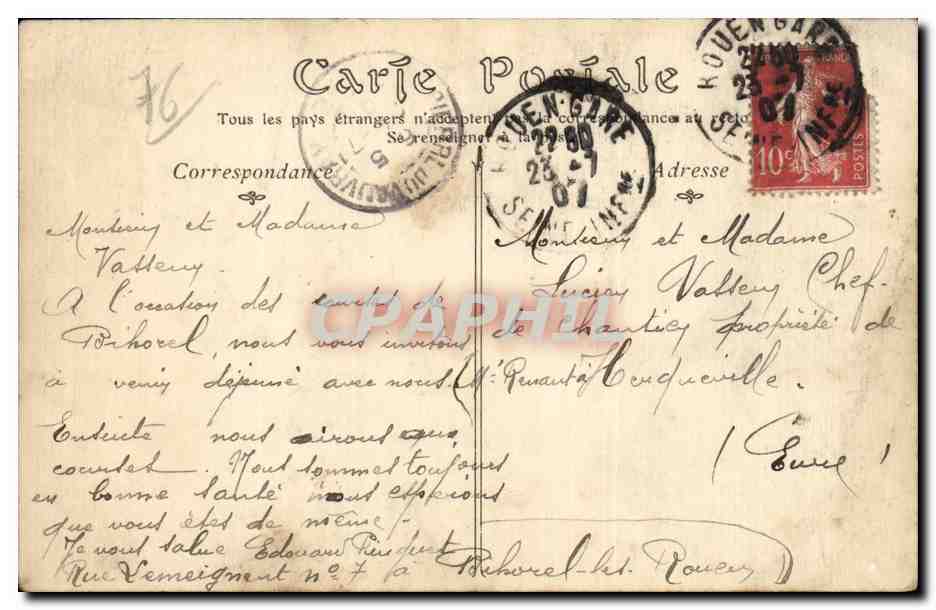 76
Carte Postale
Tous les pays étrangers n'acceptent pas la correspondance au recto
Se renseigner à la
Correspondance
Adresse
ROUEN-GARE
22 50
23 - 7
07
SEINE INFRE
ROUEN-GARE
22 50
23 - 7
07
SEINE INFRE
10c
POSTES
Monsieur et Madame
Vasseur
A l'occasion des courses de
Bihorel, nous vous invitons
à venir déjeuné avec nous.
Ensuite nous airons aux
courses. Nous sommes toujours
en bonne santé nous espérons
que vous êtes de même.
Je vous salue Edouard
Rue n° 7 à Bihorel-les-Rouen
Monsieur et Madame
Lucien Vasseur Chef-
de chantier propriété de
Mr Renault à Herqueville.
(Eure)
CPAPHIL